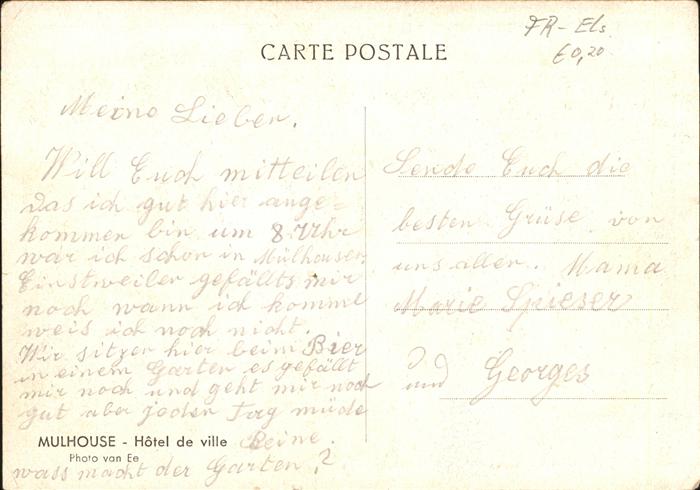 FR - Els.
€0,20
CARTE POSTALE
Meine Lieben.
Will Euch mitteilen
das ich gut hier ange-
kommen bin um 8 Uhr
war ich schon in Mülhausen.
Einstweilen gefällts mir
noch wann ich komme
weis ich noch nicht.
Wir sitzen hier beim Bier
in einem Garten es gefällt
mir noch und geht mir noch
gut aber jeden Tag müde
Beine.
wass macht der Garten?
MULHOUSE - Hôtel de ville
Photo van Ee
Sende Euch die
besten Grüse von
uns allen. Mama
Marie Spieser
und Georges